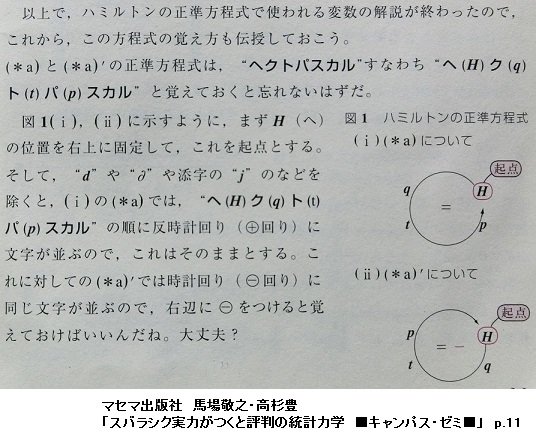 以上で，ハミルトンの正準方程式で使われる変数の解説が終わったので，
これから，この方程式の覚え方も伝授しておこう。
(*a)と(*a)′の正準方程式は，“ヘクトパスカル”すなわち“ヘ(H)ク(q)
ト(t)パ(p)スカル”と覚えておくと忘れないはずだ。
図1(ⅰ)，(ⅱ)に示すように，まずH(ヘ)
の位置を右上に固定して，これを起点とする。
そして，“d”や“∂”や添字の“j”のなどを
除くと，(ⅰ)の(*a)では，“ヘ(H)ク(q)ト(t)
パ(p)スカル”の順に反時計回り(⊕回り)に
文字が並ぶので，これはそのままとする。こ
れに対しての(*a)′では時計回り(⊖回り)に
同じ文字が並ぶので，右辺に⊖をつけると覚
えておけばいいんだね。大丈夫？
図1 ハミルトンの正準方程式
(ⅰ)(*a)について
起点
H
q
=
t
p
(ⅱ)(*a)′について
起点
p
H
= −
t
q
マセマ出版社 馬場敬之・高杉豊
「スバラシク実力がつくと評判の統計力学 ■キャンパス・ゼミ■」 p.11